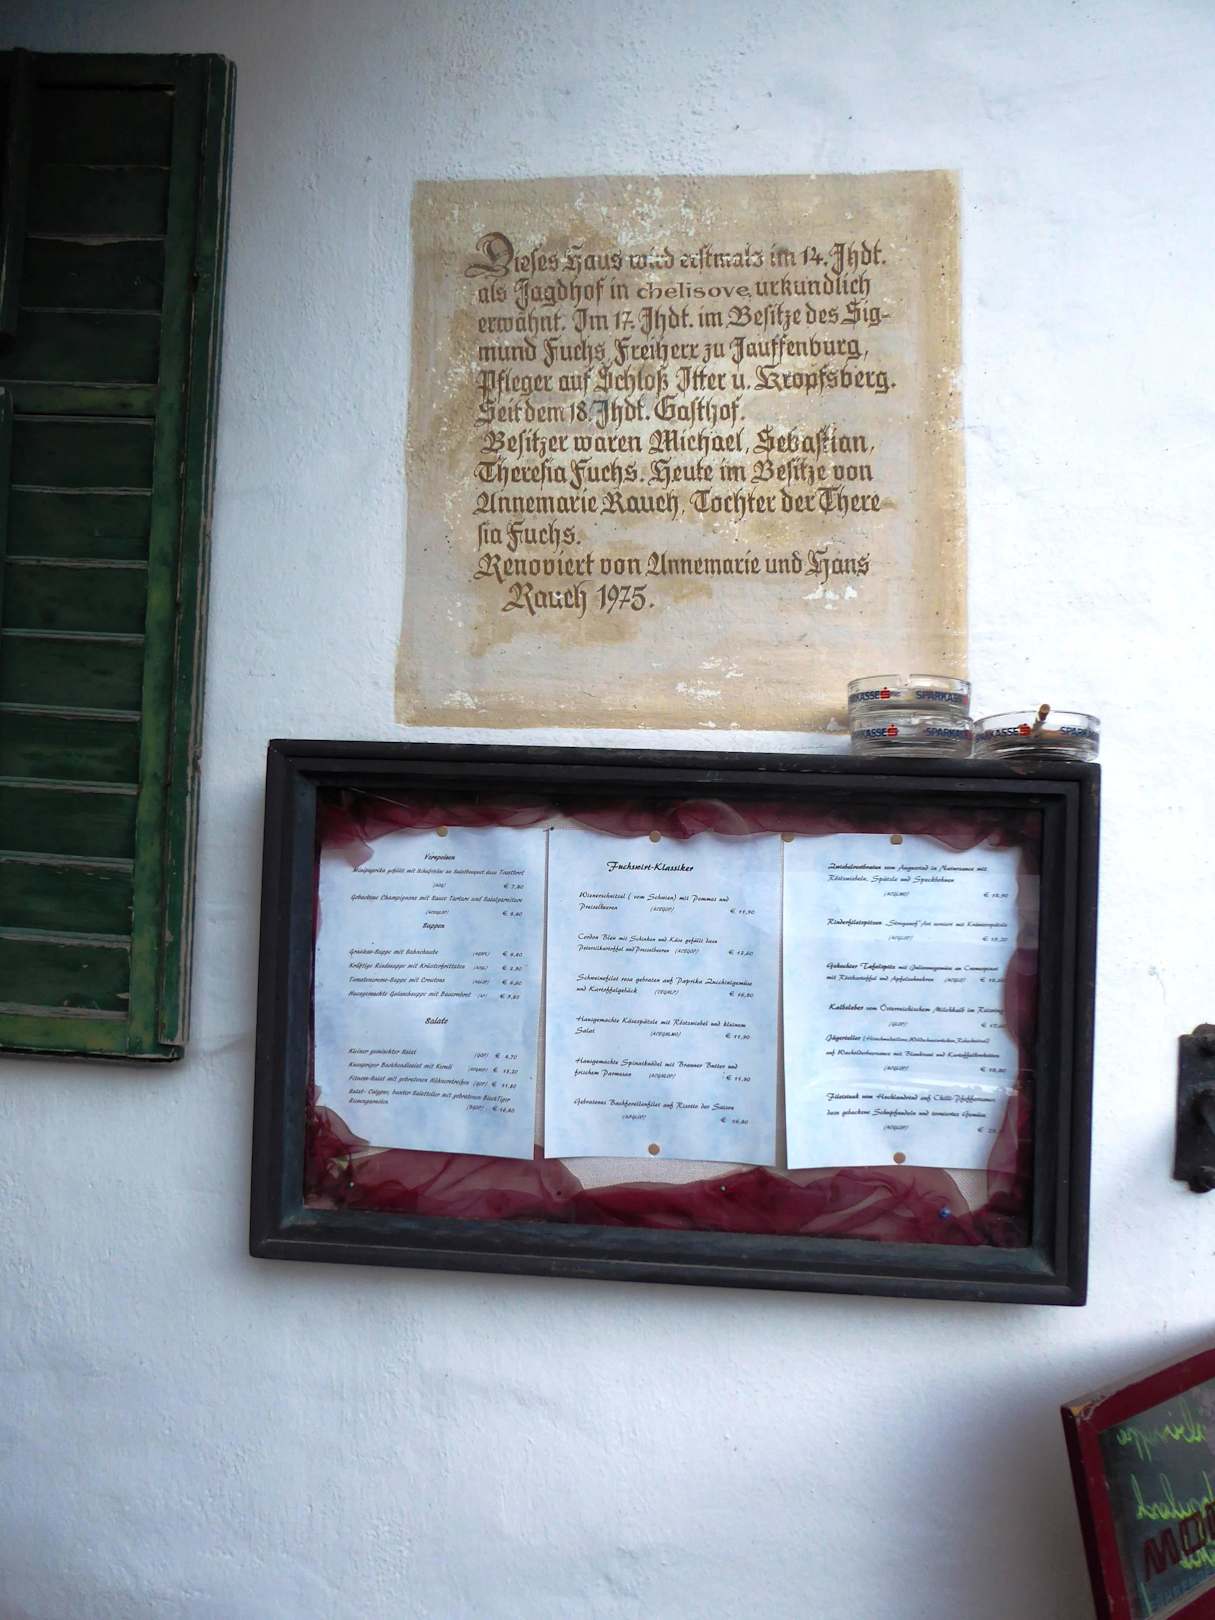 Dieses Haus wird erstmals im 14. Jhdt.
als Jagdhof in chelisove, urkundlich
erwähnt. Im 17. Jhdt. im Besitze des Sig-
mund Fuchs, Freiherr zu Jauffenburg,
Pfleger auf Schloß Itter u. Kropfsberg.
Seit dem 18. Jhdt. Gasthof.
Besitzer waren Michael, Sebastian,
Theresia Fuchs. Heute im Besitze von
Annemarie Rauch, Tochter der There-
sia Fuchs.
Renoviert von Annemarie und Hans
Rauch 1975.
SPARKASSE
SPARKASSE
Vorspeisen
€ 7,80
Gebackene Champignons mit Sauce Tartare und Salatgarnitur
Suppen
Kräftige Rindsuppe mit Kräuterfrittaten
Tomatencreme-Suppe mit Croutons
Hausgemachte Gulaschsuppe mit Bauernbrot
Salate
Kleiner gemischter Salat
€ 4,70
Knuspriger Backhendlsalat mit Kernöl
Fitness-Salat mit gebratenen Hühnerstreifen
Fuchswirt-Klassiker
Wienerschnitzel ( vom Schwein) mit Pommes und
Preiselbeeren
€ 11,90
Cordon Bleu mit Schinken und Käse gefüllt dazu
Petersilkartoffel und Preiselbeeren
Schweinefilet rosa gebraten auf Paprika Zucchinigemüse
und Kartoffelgebäck
Hausgemachte Käsespätzle mit Röstzwiebel und kleinem
Salat
€ 11,90
Hausgemachte Spinatknödel mit Brauner Butter und
frischem Parmesan
Gebratenes Bachforellenfilet auf Risotto der Saison
Zwiebelrostbraten vom Angusrind in Natursauce mit
Röstzwiebeln, Spätzle und Speckbohnen
Gekochter Tafelspitz mit Juliennegemüse an Cremespinat
mit Röstkartoffel und Apfelmeerrettich
Kalbsleber vom Österreichischem Milchkalb im
Jägerteller
auf Wacholderbeersauce mit Blaukraut und
Filetsteak vom Hochlandrind auf Chilli-Pfeffersauce
dazu gebackene Schupfnudeln und tomiertes Gemüse